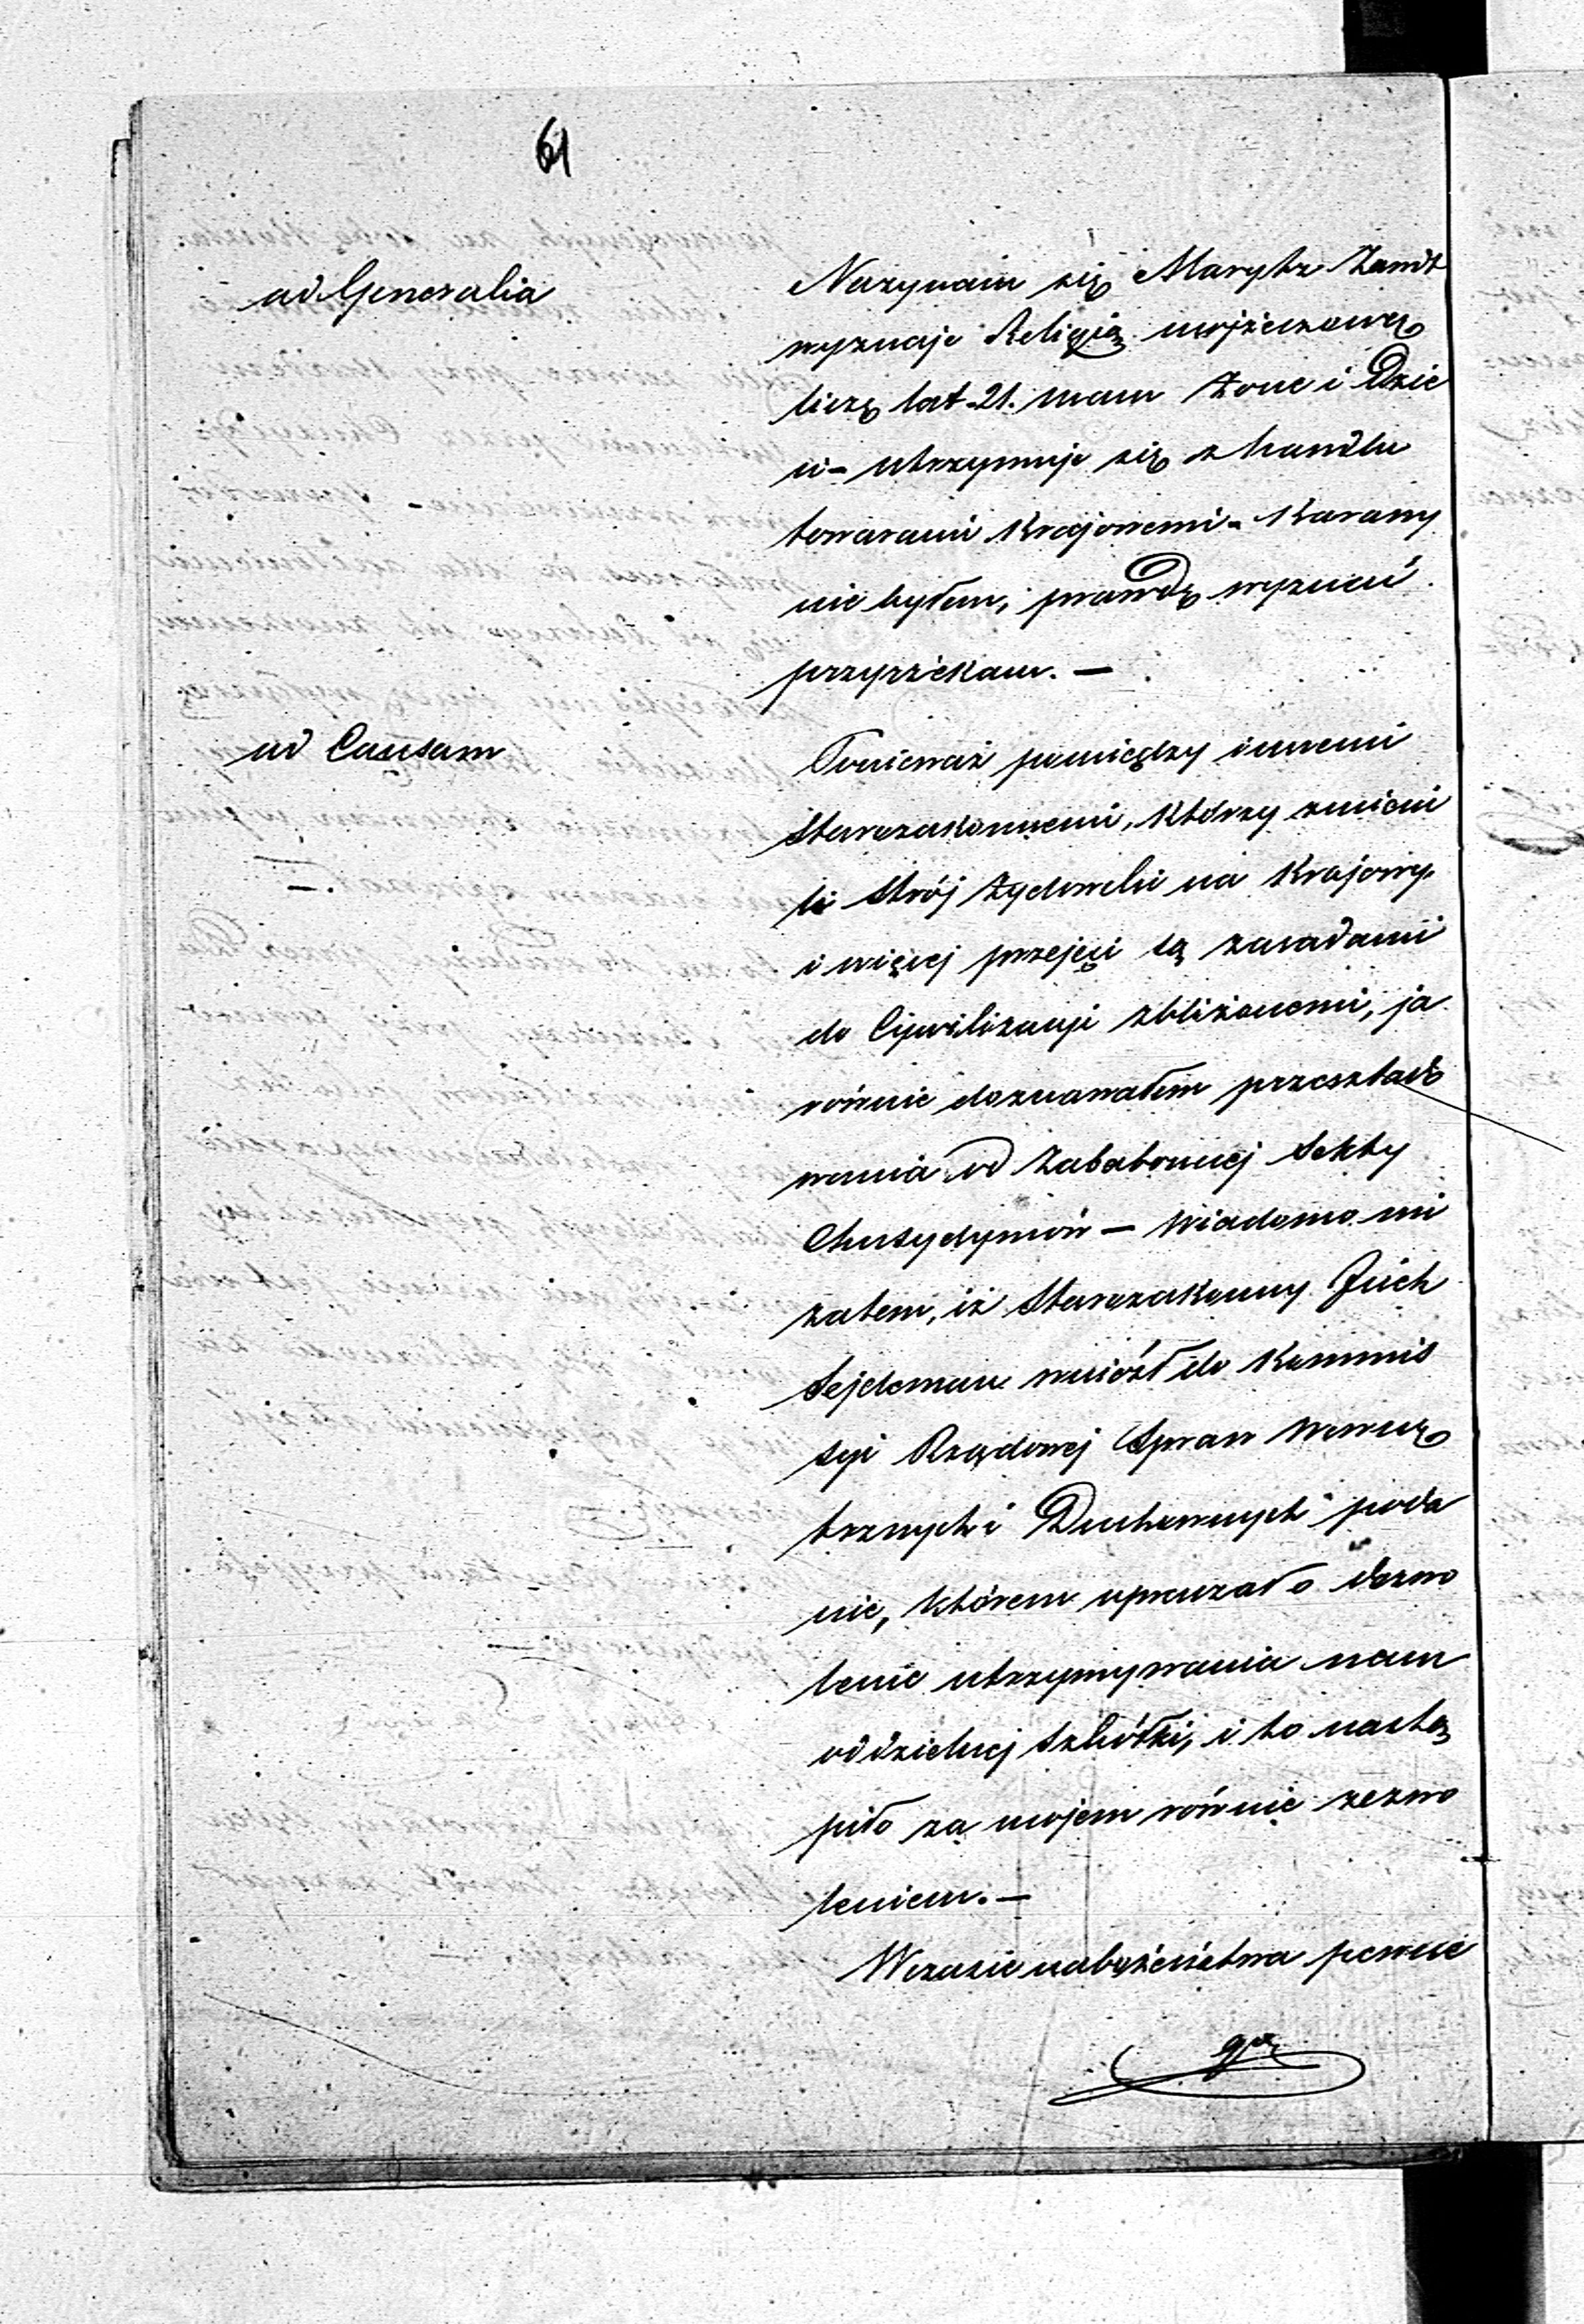 61
ad Generalia
Nazywam się Maryks Zandt
wyznaję Religią mojżeszową
liczę lat 21. mam Żonę i Dzie
ci - utrzymuje się z handlu
towarami Krajowemi - Karany
nie byłem, prawdę wyznać
przyrzekam. —
ad Causam
Ponieważ pomiędzy innemi
Starozakonnemi, którzy zmieni
li Strój Żydowski na Krajowy
i więcej przejęci są zasadami
do Cywilizacyi zbliżonemi, ja
równie doznawałem prześlado
wania od Zabobonnej Sekty
Chusydymów — Wiadomo mi
zatem, iż Starozakonny
Sejdeman wniósł do Kommis
syi Rządowej Spraw Wewnę
trznych i Duchownych poda
nie, którem upraszał o dozwo
lenie utrzymywania nam
oddzielnej Szkółki, i to nastą
piło za mojem równie zezwo
leniem. —
W czasie nabożeństwa pewnie